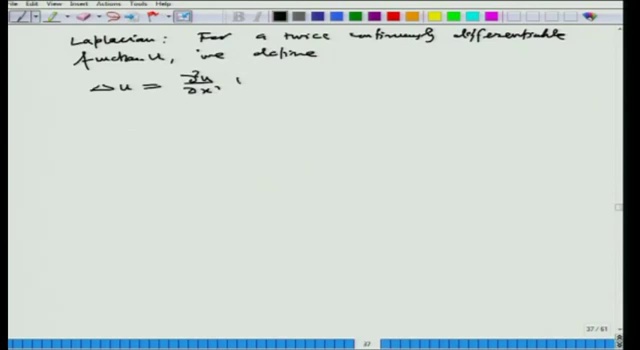 View Insert Actions Tools Help
Laplacian: For a twice continuously differentiable
function u, we define
Δu = ∂²u/∂x²
37 / 61
37